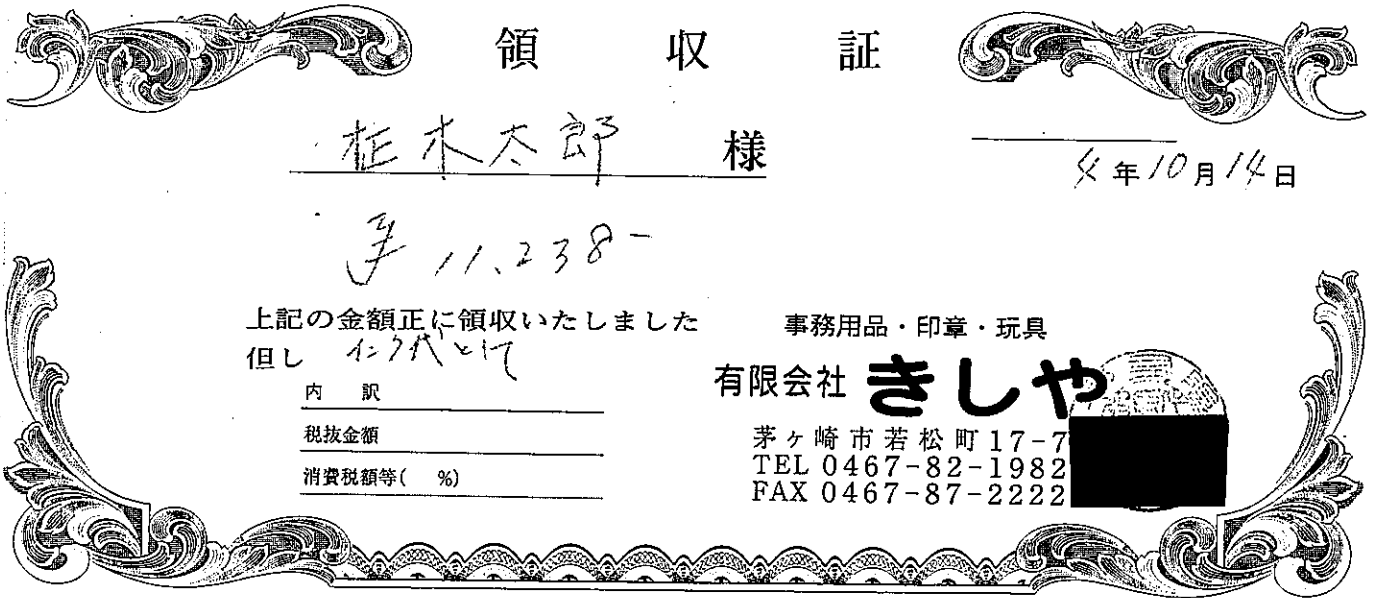 領収証
柾木太郎 様
4年10月14日
¥ 11,238-
上記の金額正に領収いたしました
但し インク代として
内訳
税抜金額
消費税額等( %)
事務用品・印章・玩具
有限会社 きしや
茅ヶ崎市若松町17-7
TEL 0467-82-1982
FAX 0467-87-2222